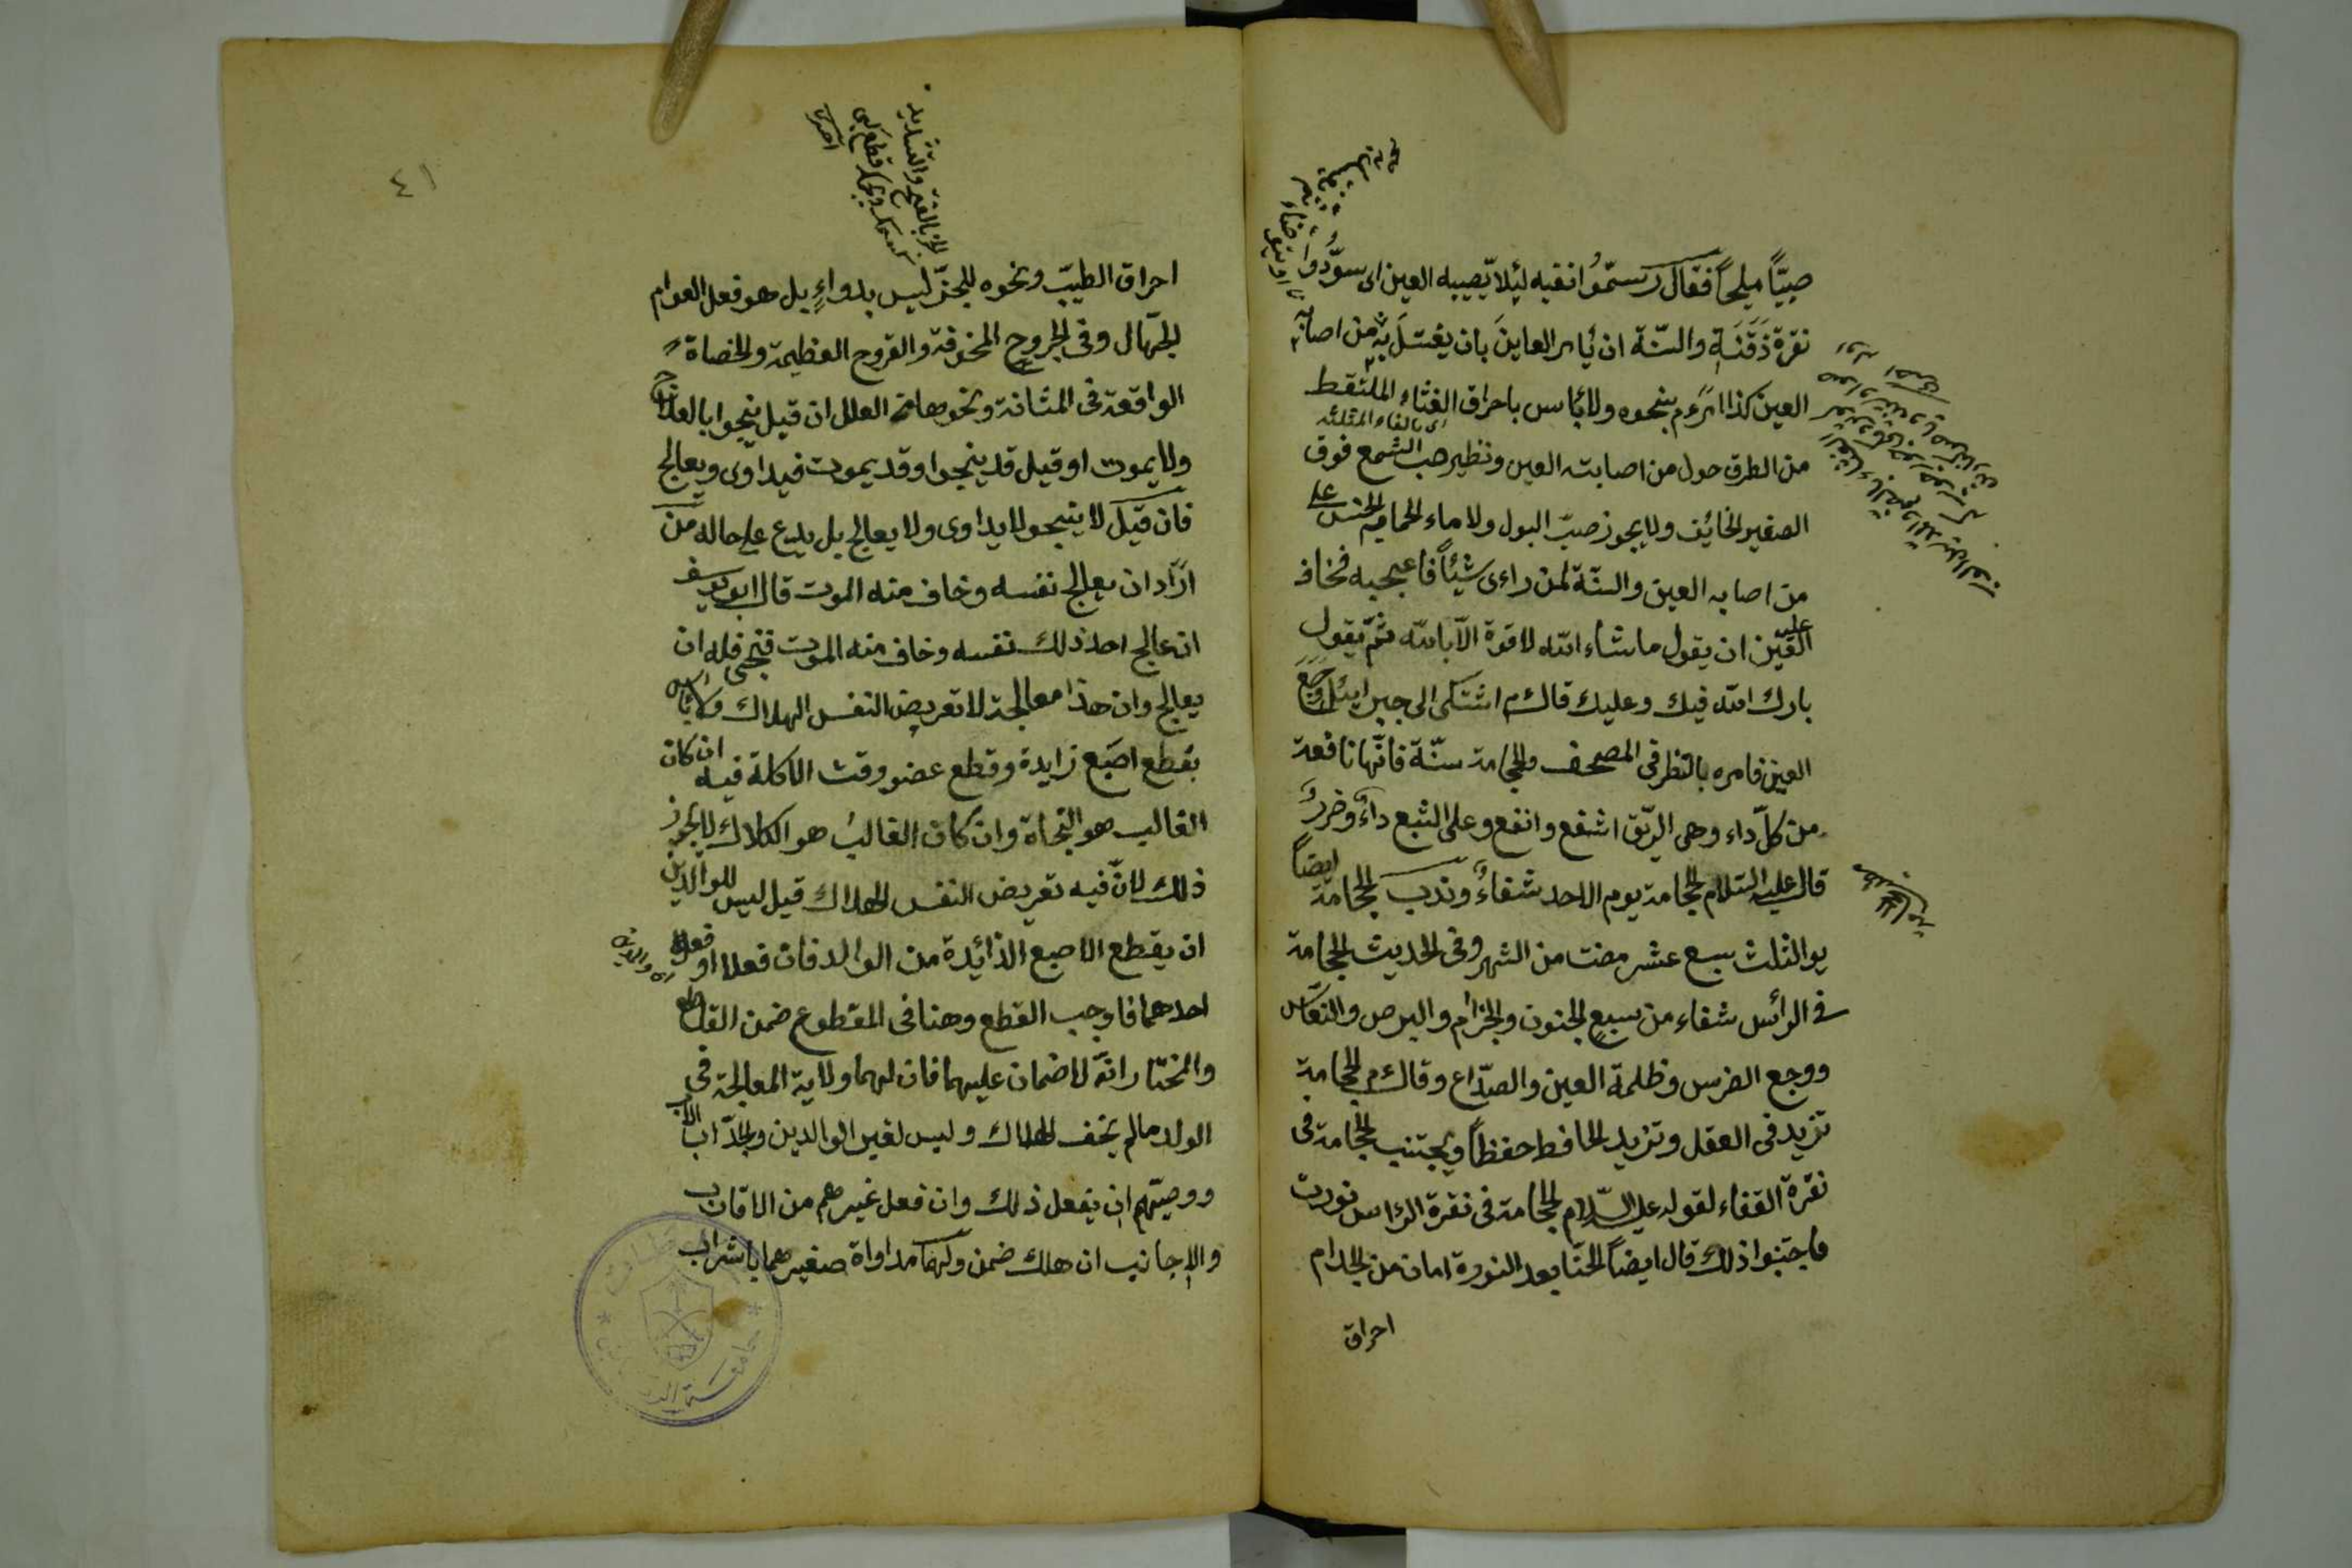 صبيّاً مليحاً فقال رسّموُا نقبه لئلا يّصيبه العين اى سوّدوا
نقرة ذَقَنَهِ والسّنة ان يُامر العاين بان يغتسلَ به من اصابه
العين كذا امر م بنحوه ولا باس باحراق الغثاء الملتقط
اى بالغاء المثلثه
من الطرق حول من اصابته العين ونظير صب الشمع فوق
الصغير الخائف ولا يجوز صبّ البول ولا ماء الحمام النجس على
من اصابه العين والسّنة لمن راءى شيئاً فاعجبه فخاف
عليه العين ان يقول ماشاء الله لا قوة الّا بالله ثمّ يقول
بارك الله فيك وعليك قال م اشتكى الى جبرائيل وَجَعَ
العين فامره بالنظر فى المصحف والحجامة سنّة فانّها نافعة
من كلّ داء وهى الرّيق اشفع وانفع وعلى الشبع داءٌ وضررٌ
قال عليه السّلام الحجامة يوم الاحد شفاءٌ وندب الحجامة ايضاً
يو الثلث سبع عشر مضت من الشهر وفى الحديث الحجامة
فى الرأس شفاء من سبعٍ الجنون والجزام والبرص والنعاس
ووجع الضرس وظلمة العين والصدّاع وقال م الحجامة
تزيد فى العقل وتزيد الحافظ حفظاً ويجتنب الحجامة فى
نقرة القفاء لقوله عليه السّلام الحجامة فى نقرة الراس تورث
فاجتنبوا ذلك قال ايضاً الحنّا بعد النورة امان من الجدام
احراق
٤١
احراق الطيبّ ونحوه للجنّ ليس بدواءٍ بل هو فعل العوام
الجهّال وفى الجروح المخوفة والقروح العظيمة والحصاة
الواقعة فى المثانة ونحوها من العلل ان قيل ينجوا بالعلاج
ولا يموت او قيل قد ينجوا وقد يموت فيداوى ويعالج
فان قيل لا ينجو لا يداوى ولا يعالج بل يدع على حاله من
ارّاد ان يعالج نفسه وخاف منه الموت قال ابو يوسف
ان عالج احد ذلك نفسه وخاف منه الموت فنجى فله ان
يعالج وان هذا معالجة لا تعريض النفس الهلاك ولا باس
بقطع اصبَع زايدة وقطع عضو وقت الاكلة فيه ان كان
الغالب هو النجاة وان كان الغالبُ هو الكلاك لا يجوز
ذلك لانّ فيه تعريض النفس الهلاك قيل ليس للوالدين
ان يقطع الاصبع الذائدة من الوالد فان فعلا او فعله
احدهما فاوجب القطع وهنا فى المقطوع ضمن القاطع
والمختار انّه لا ضمان عليهما فان لهما ولاية المعالجة فى
الولد مالم يخف الهلاك وليس لغير الوالدين والجدّ اب الاب
ووصيّهم ان يفعل ذلك وان فعل غيرهم من الاقارب
والاجانب ان هلك ضمن ولهما مداواة صغيرهما باشراب